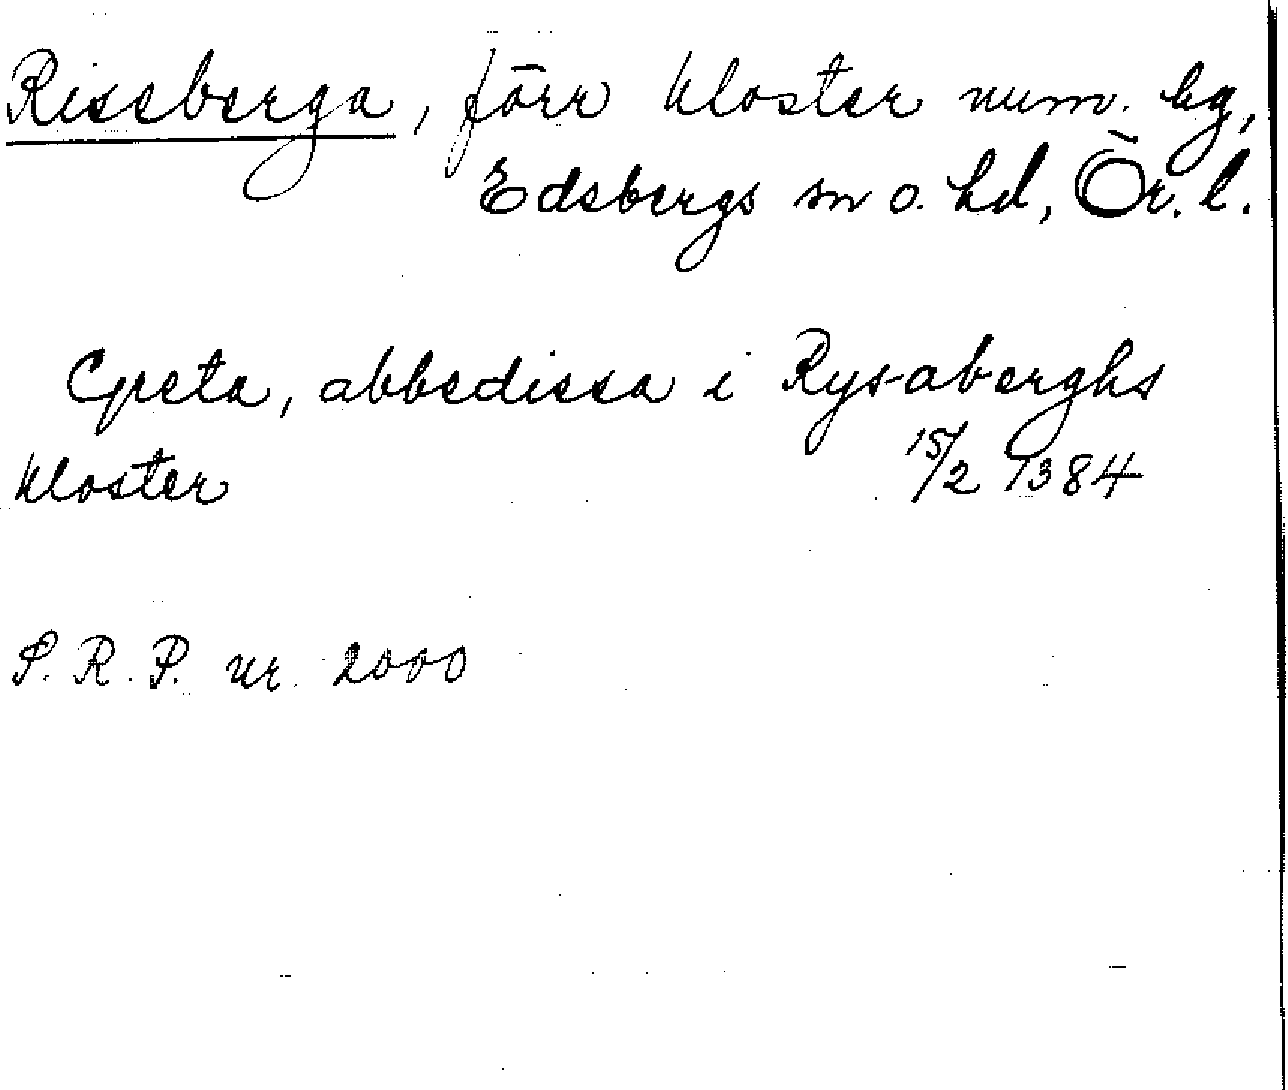 Riseberga, förr kloster num. hg,
Edsbergs sn o. hd, Ör. l.
Greta, abbedissa i Rysaberghs
kloster 15/2 1384
S. R. P. nr. 2000